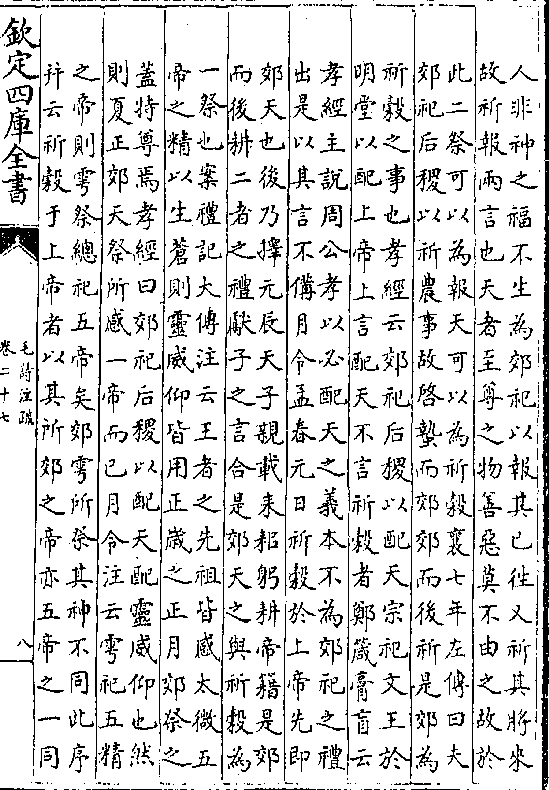 人非神之福不生為郊祀以報其已徃又祈其將來
故祈報兩言也天者至尊之物善惡莫不由之故於
此二祭可以為報天可以為祈穀襄七年左傳曰夫
郊祀后稷以祈農事故啓蟄而郊郊而後祈是郊為
祈穀之事也孝經云郊祀后稷以配天宗祀文王於
明堂以配上帝上言配天不言祈穀者鄭箴膏肓云
孝經主說周公孝以必配天之義本不為郊祀之禮
出是以其言不僃月令孟春元日祈穀於上帝先即
郊天也後乃擇元辰天子親載耒耜躬耕帝籍是郊
而後耕二者之禮獻子之言合是郊天之與祈穀為
一祭也案禮記大傳注云王者之先祖皆感太微五
帝之精以生蒼則靈威仰皆用正歲之正月郊祭之
蓋特尊焉孝經曰郊祀后稷以配天配靈威仰也然
則夏正郊天祭所感一帝而已月令注云雩祀五精
之帝則雩祭總祀五帝矣郊雩所祭其神不同此序
幷云祈穀于上帝者以其所郊之帝亦五帝之一同
欽定四庫全書
毛詩注疏
卷二十七
八